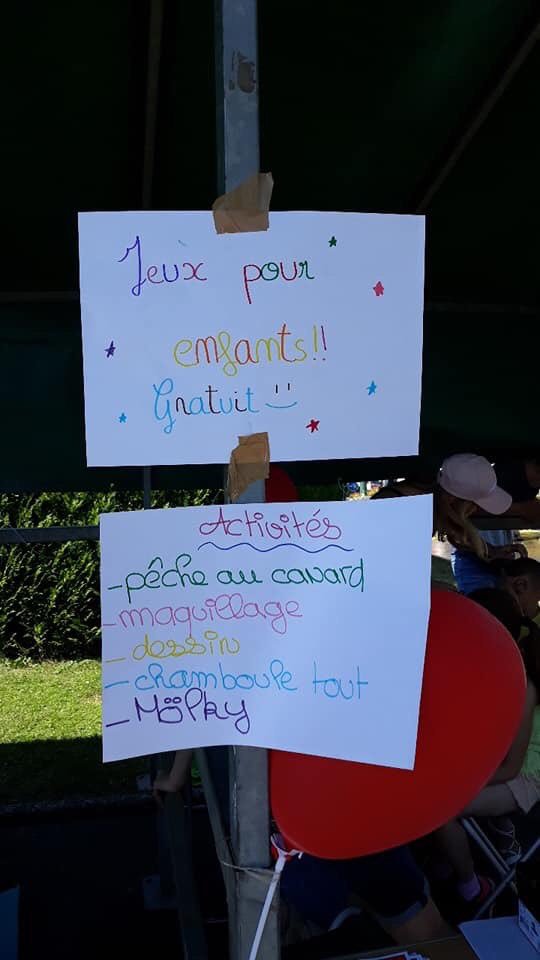 Jeux pour
enfants!!
Gratuit
Activités
-pêche au canard
-maquillage
-dessin
-chamboule tout
-Mölky